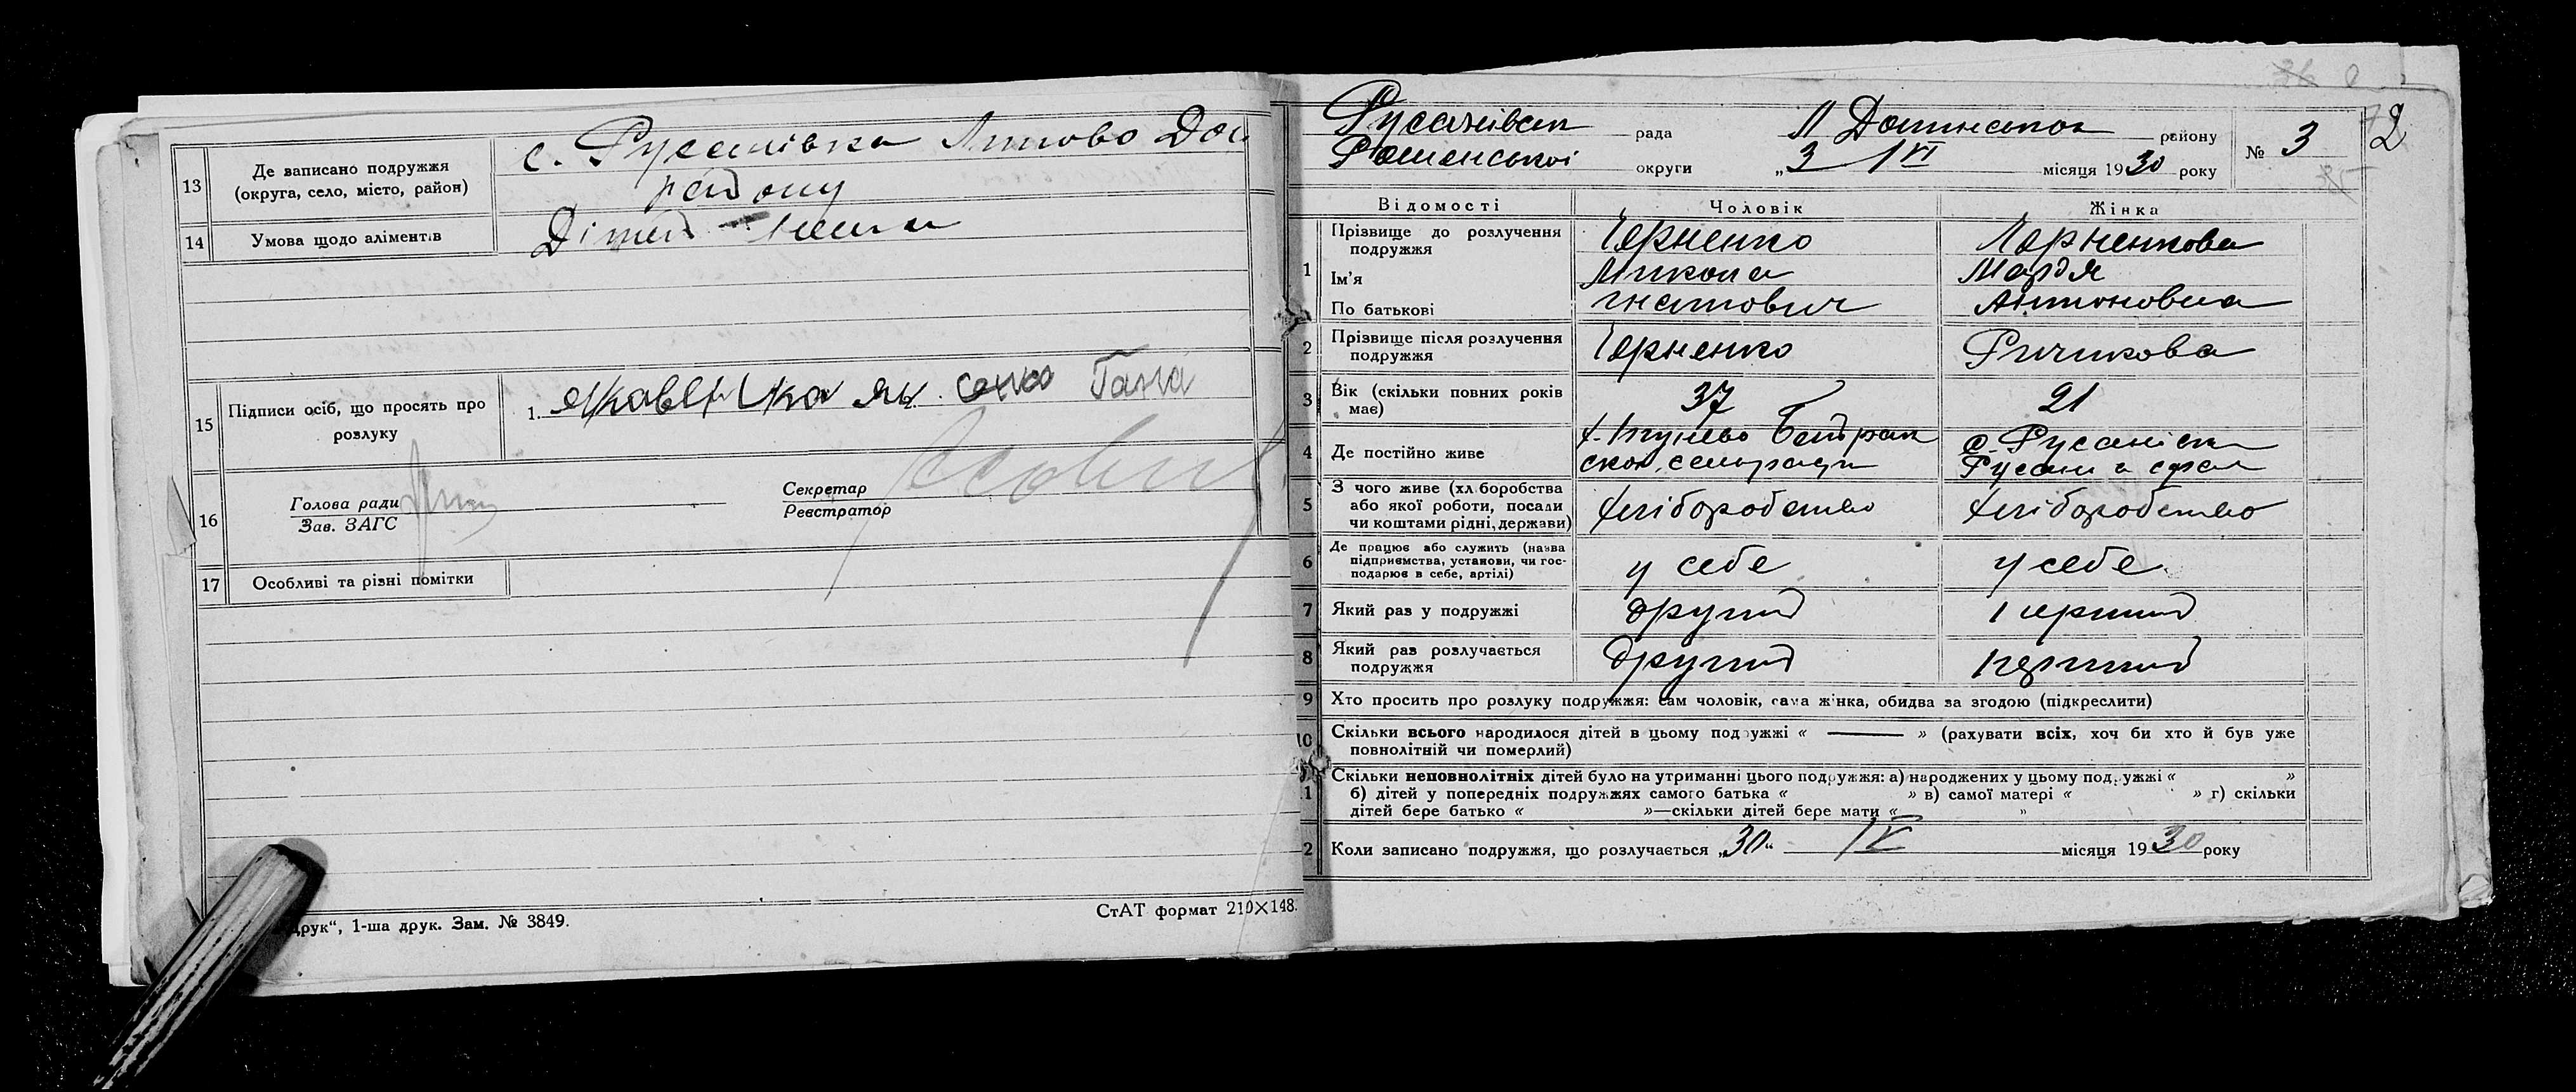 13 Де записано подружжя
(округа, село, місто, район)
с. Русанівка Липово Дол
району
14 Умова щодо аліментів
Дітей нема
15 Підписи осіб, що просять про
розлуку
1. Ганна
16 Голова ради
Зав. ЗАГС
Секретар
Реєстратор
17 Особливі та різні помітки
друк“, 1-ша друк. Зам. № 3849.
СтАТ формат 210×148.
Русанівськ рада Л Долинської району
Роменської округи „3 VI місяця 1930 року
№ 3
72
Відомості Чоловік Жінка
1 Прізвище до розлучення
подружжя
Черненко Черненкова
Ім'я Микола Мар'я
По батькові гнатович Антоновна
2 Прізвище після розлучення
подружжя
Черненко Ричикова
3 Вік (скільки повних років
має)
37 21
4 Де постійно живе
х. сільради
с. Русанівка
5 З чого живе (хліборобства
або якої роботи, посади
чи коштами рідні, держави)
хліборобство хліборобство
6 Де працює або служить (назва
підприємства, установи, чи гос-
подарює в себе, артілі)
у себе у себе
7 Який раз у подружжі
другий перший
8 Який раз розлучається
подружжя
другий перший
9 Хто просить про розлуку подружжя: сам чоловік, сама жінка, обидва за згодою (підкреслити)
10 Скільки всього народилося дітей в цьому подружжі « — » (рахувати всіх, хоч би хто й був уже
повнолітній чи померлий)
11 Скільки неповнолітніх дітей було на утриманні цього подружжя: а) народжених у цьому подружжі « »
б) дітей у попередніх подружжях самого батька « » в) самої матері « » г) скільки
дітей бере батько « »—скільки дітей бере мати « »
12 Коли записано подружжя, що розлучається „30“ IV місяця 1930 року